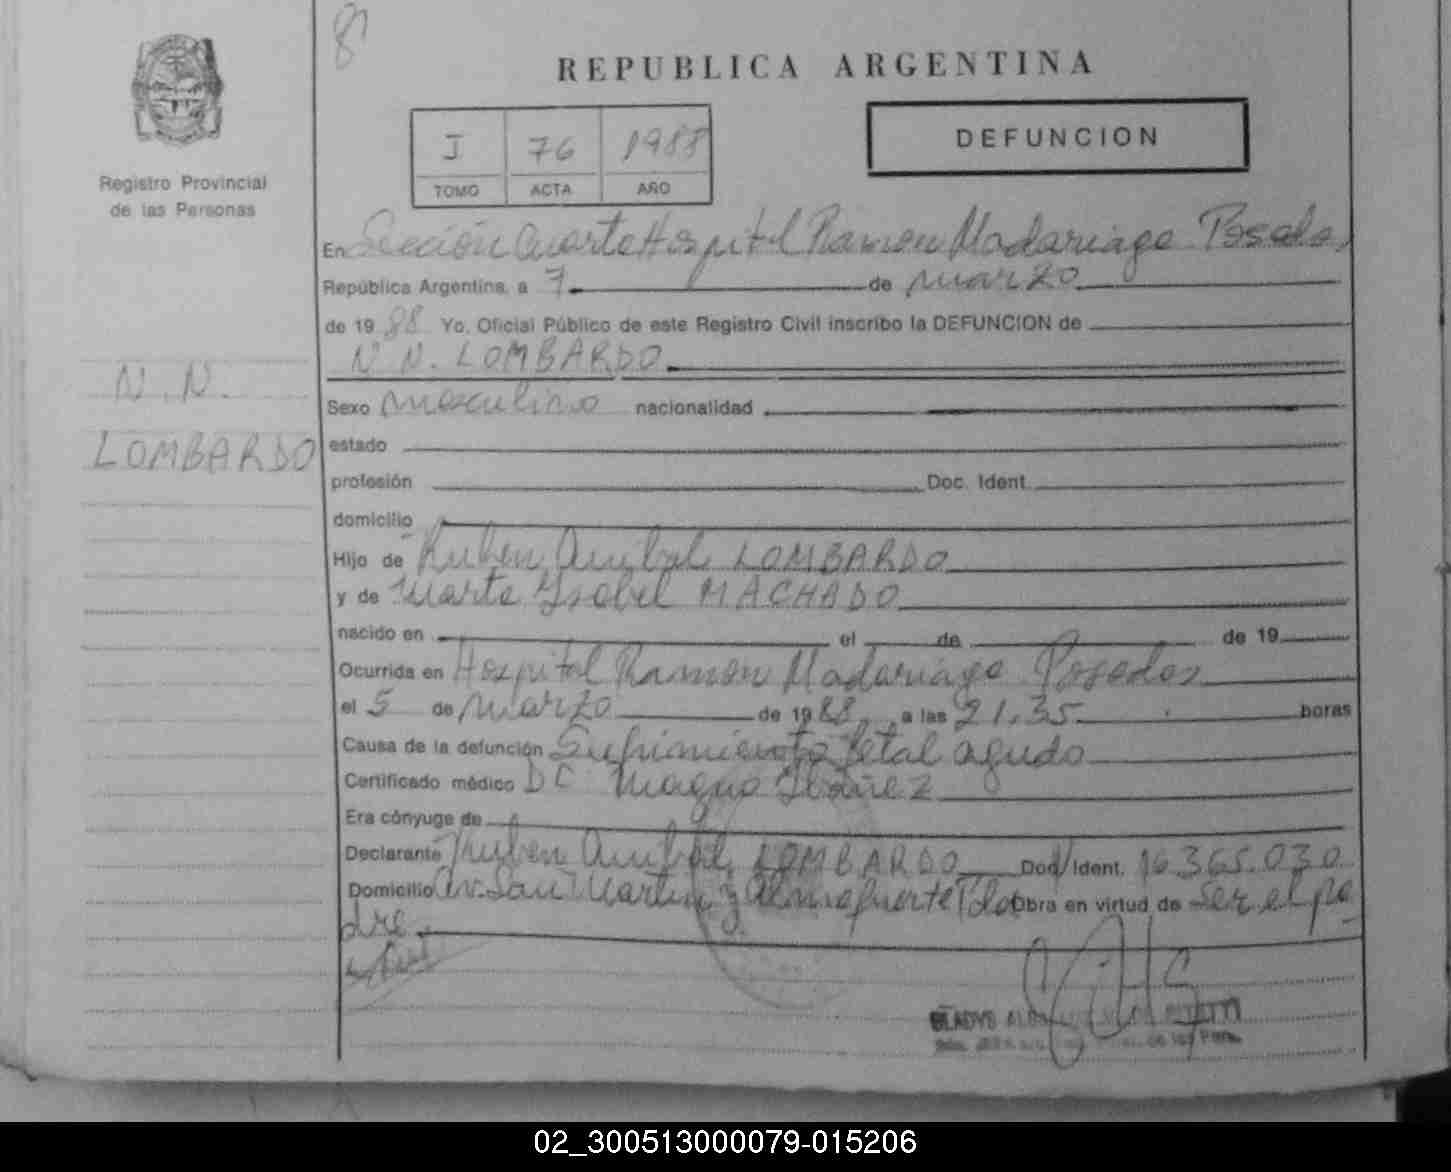 8
REPUBLICA ARGENTINA
I 76 1988
TOMO ACTA AÑO
DEFUNCION
Registro Provincial
de las Personas
N.N.
LOMBARDO
En Sección Cuarta Hospital Ramon Madariaga Posadas
República Argentina, a 7 de marzo
de 1988 Yo, Oficial Público de este Registro Civil inscribo la DEFUNCION de
N N. LOMBARDO
Sexo masculino nacionalidad
estado
profesión Doc. Ident.
domicilio
Hijo de Ruben Anibal LOMBARDO
y de Marta Ysabel MACHADO
nacido en el de de 19
Ocurrida en Hospital Ramon Madariaga Posadas
el 5 de marzo de 1988, a las 21,35 horas
Causa de la defunción Sufrimiento fetal agudo
Certificado médico Ibañez
Era cónyuge de
Declarante Ruben Anibal LOMBARDO Doc. Ident. 16.365.030
Domicilio Av. San Martin y Almafuerte Pdas Obra en virtud de ser el pa
dre.
GLADYS
02_300513000079-015206